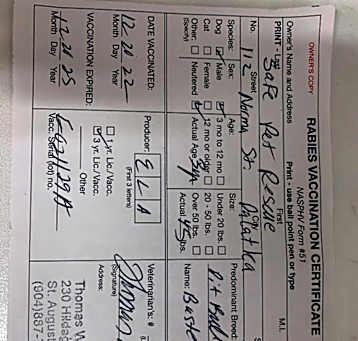 OWNER'S COPY
RABIES VACCINATION CERTIFICATE
NASPHV Form #51
PRINT - Last First M.I. Print - use ball point pen or type
Owner's Name and Address
Safe Pet Rescue
No. Street City
112 Norma Str. Palatka
Species: Sex: Age: Size: Predominant Breed:
Dog Male 3 mo to 12 mo Under 20 lbs. Pit Bull
Cat Female 12 mo or older 20 - 50 lbs. Name:
Other: Neutered Actual Age Over 50 lbs.
(Specify) Actual 45 lbs.
DATE VACCINATED: Producer: E L A Veterinarian's: #
12 21 22 (First 3 letters) Thomas
Month Day Year 1 yr. Lic/Vacc. (Signature)
VACCINATION EXPIRED: 3 yr. Lic/Vacc. Address:
12 21 25 Other Thomas W
Month Day Year Vacc. Serial (lot) no. 230 HRdag
St. August
(904)887-